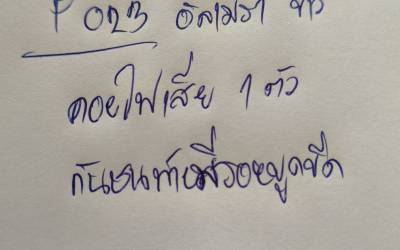 P 023 อัลเมร่า ขาว
คอยไฟเสีย 1 ตัว
กันชนท้ายมีรอยขูดขีด